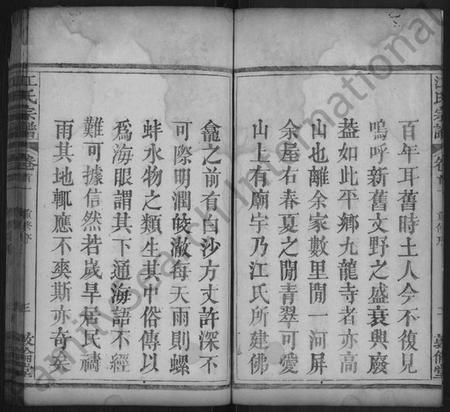 百年耳舊時土人今不復見
嗚呼新舊文野之盛衰興廢
葢如此平鄉九龍寺者亦高
山也離余家數里開一河屏
余屋右春夏之閒青翠可愛
山上有廟宇乃江氏所建佛
龕之前有白沙方丈許深不
可際明潤皎澈每天雨則螺
蚌水物之類生其中俗傳以
為海眼謂其下通海語不經
難可據信然若歲旱居民禱
雨其地輒應不爽斯亦奇矣
江氏宗譜
卷首
三
敦倫堂
江氏宗譜
卷首
二
敦倫堂
FamilySearch International